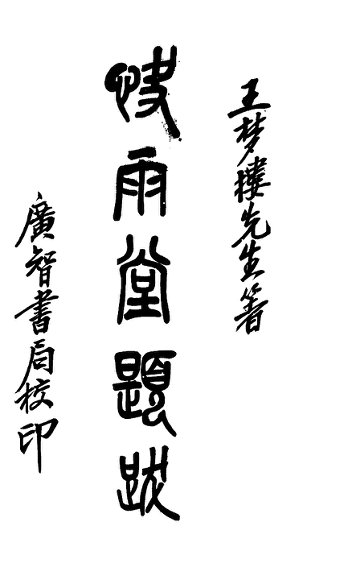 王梦樓先生箸
快雨堂題跋
廣智書局校印